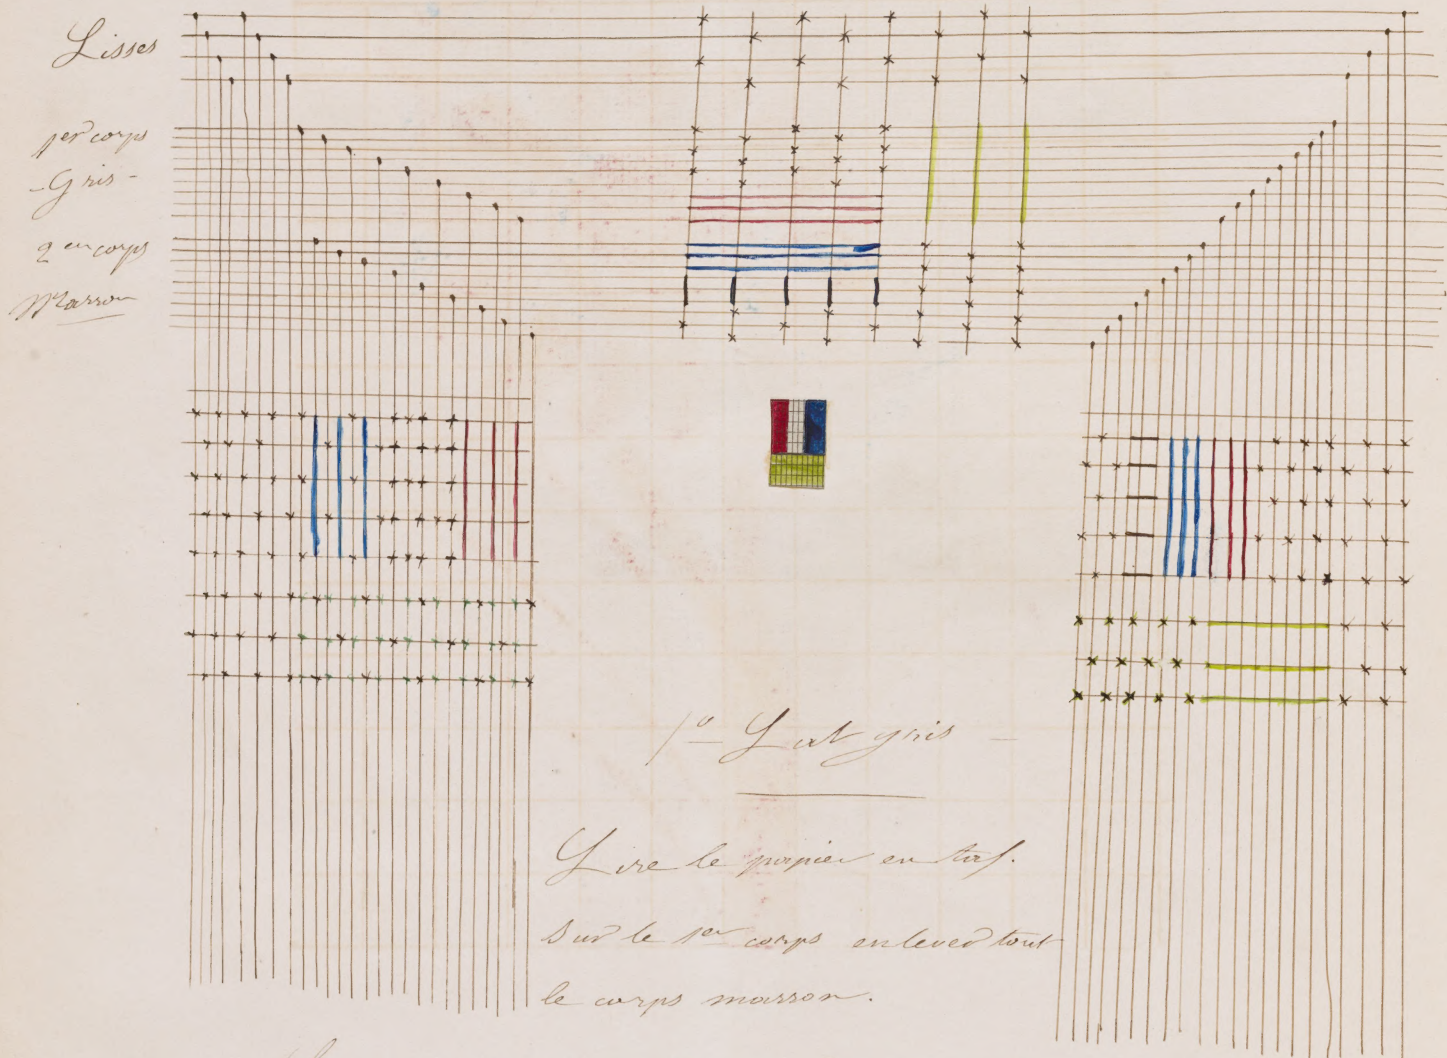 Lisses
1er corps
- Gris -
2en corps
Marron
1o Lat gris -
Lire le papier en taf.
Sur le 1er corps enlever tout
le corps marron.